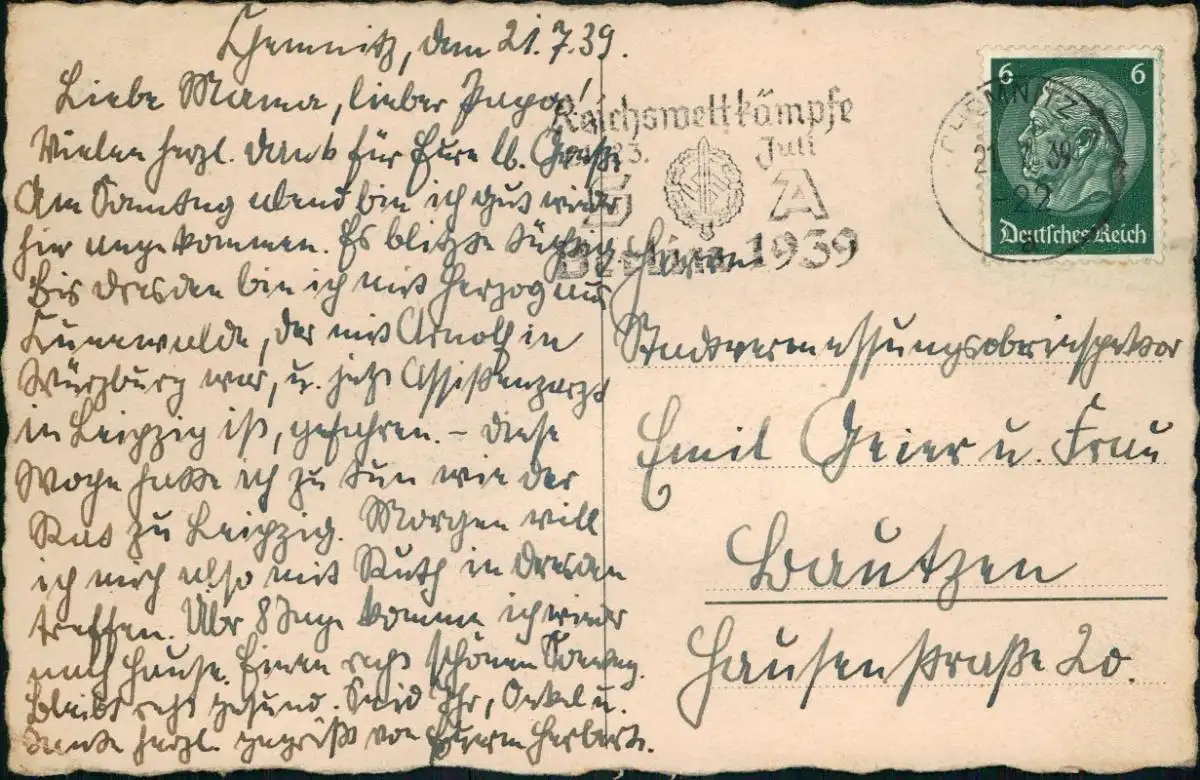 Chemnitz, dem 21.7.39.
Liebe Mama, lieber Papa!
Vielen herzl. Dank für Eure lb. Grüße.
Am Sonntag abend bin ich gut wieder
hier angekommen. Es blitzte tüchtig.
Bis Dresden bin ich mit Herzog aus
Cunewalde, der mit Arnolf in
Würzburg war, u. jetzt Assistenzarzt
in Leipzig ist, gefahren. – Diese
Woche hatte ich zu tun wie der
Rat zu Leipzig. Morgen will
ich mich also mit Ruth in Dresden
treffen. Über 8 Tage komme ich wieder
nach Hause. Einen recht schönen Sonntag.
Bleibt recht gesund. Seid Ihr, Onkel u.
Tante herzl. gegrüßt von Eurem Herbert.
Reichswettkämpfe
23. Juli
SA
Berlin 1939
CHEMNITZ
21. 7. 39
-22
6 6
Deutsches Reich
Herrn
Stadtvermessungsoberinspektor
Emil Geier u. Frau
Bautzen
Hausenstraße 20.